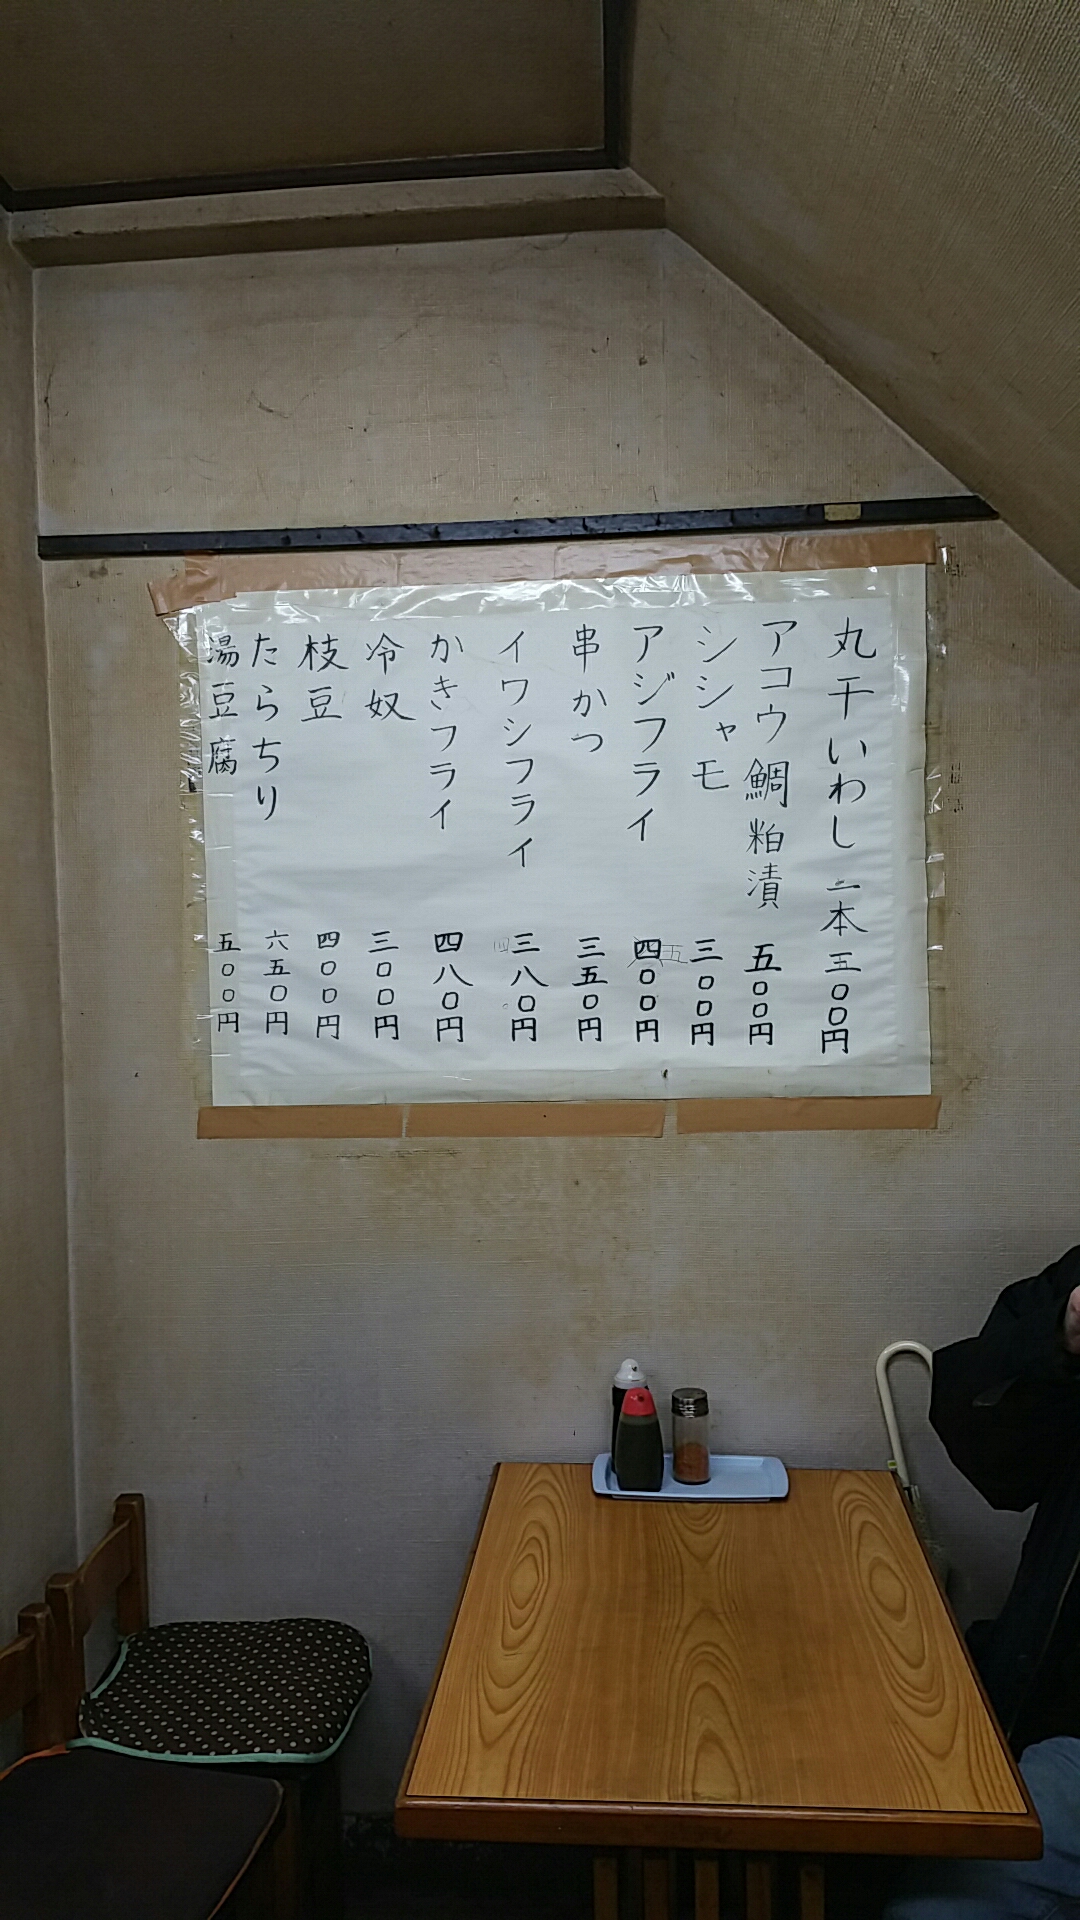 丸干いわし二本 五〇〇円
アコウ鯛粕漬 五〇〇円
シシャモ 三〇〇円
アジフライ 四〇〇円
五
串かつ 三五〇円
イワシフライ 三八〇円
四
かきフライ 四八〇円
冷奴 三〇〇円
枝豆 四〇〇円
たらちり 六五〇円
湯豆腐 五〇〇円